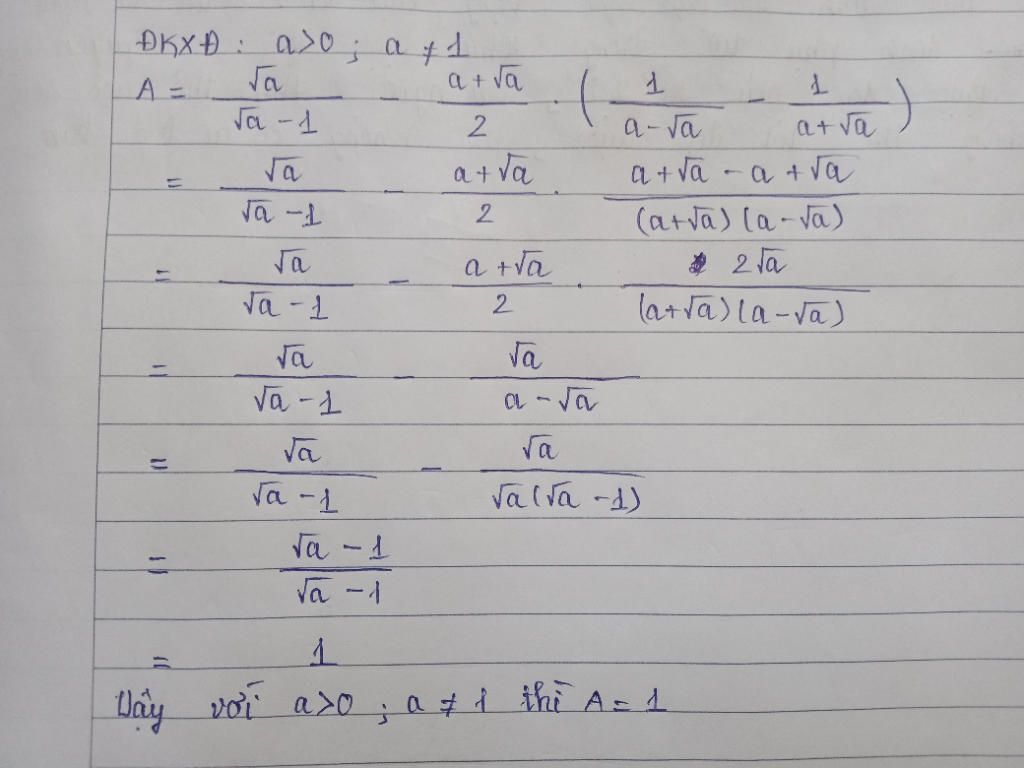 ĐKXĐ : a>0 ; a ≠ 1
A = √a/(√a - 1) - (a + √a)/2 . (1/(a - √a) - 1/(a + √a))
= √a/(√a - 1) - (a + √a)/2 . (a + √a - a + √a)/((a + √a)(a - √a))
= √a/(√a - 1) - (a + √a)/2 . 2√a/((a + √a)(a - √a))
= √a/(√a - 1) - √a/(a - √a)
= √a/(√a - 1) - √a/(√a(√a - 1))
= (√a - 1)/(√a - 1)
= 1
Vậy với a>0 ; a ≠ 1 thì A = 1